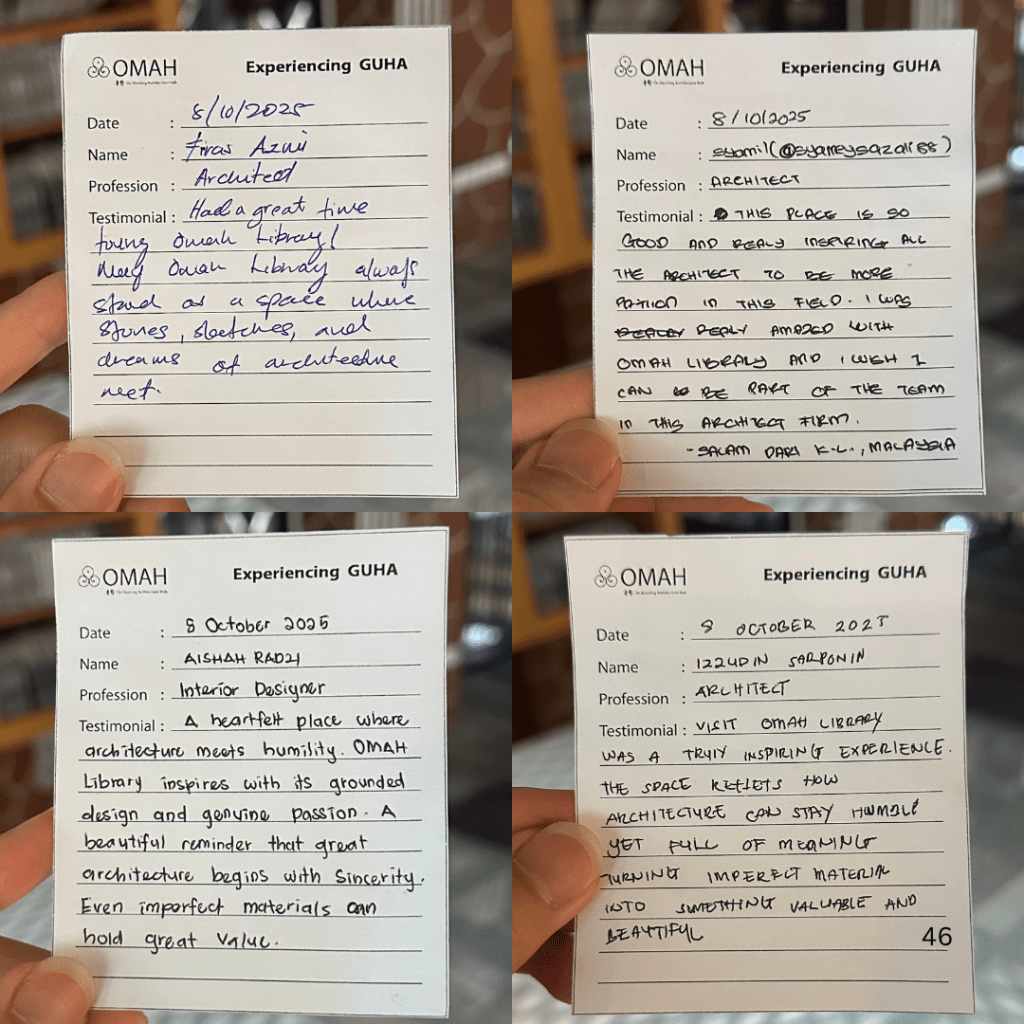 OMAH
Experiencing GUHA
Date : 8/10/2025
Name : Firas Azmi
Profession : Architect
Testimonial : Had a great time
Omah Library!
May Omah Library always
stand as a space where
stories, sketches, and
dreams of architecture
meet.
OMAH
Experiencing GUHA
Date : 8/10/2025
Name : syamil (@syameysazali88)
Profession : ARCHITECT
Testimonial : THIS PLACE IS SO
GOOD AND REALY INSPIRING ALL
THE ARCHITECT TO BE MORE
IN THIS FIELD. I WAS
REALY AMAZED WITH
OMAH LIBRARY AND I WISH I
CAN BE PART OF THE TEAM
IN THIS ARCHITECT FIRM.
-SALAM DARI K.L., MALAYSIA
OMAH
Experiencing GUHA
Date : 8 October 2025
Name : AISHAH RADZI
Profession : Interior Designer
Testimonial : A heartfelt place where
architecture meets humility. OMAH
Library inspires with its grounded
design and genuine passion. A
beautiful reminder that great
architecture begins with sincerity.
Even imperfect materials can
hold great value.
OMAH
Experiencing GUHA
Date : 8 OCTOBER 2025
Name : IZZUDIN SARPONIN
Profession : ARCHITECT
Testimonial : VISIT OMAH LIBRARY
WAS A TRULY INSPIRING EXPERIENCE.
THE SPACE REFLETS HOW
ARCHITECTURE CAN STAY HUMBLE
YET FULL OF MEANING
TURNING IMPERECT MATERIAL
INTO SOMETHING VALUABLE AND
BEAUTIFUL
46